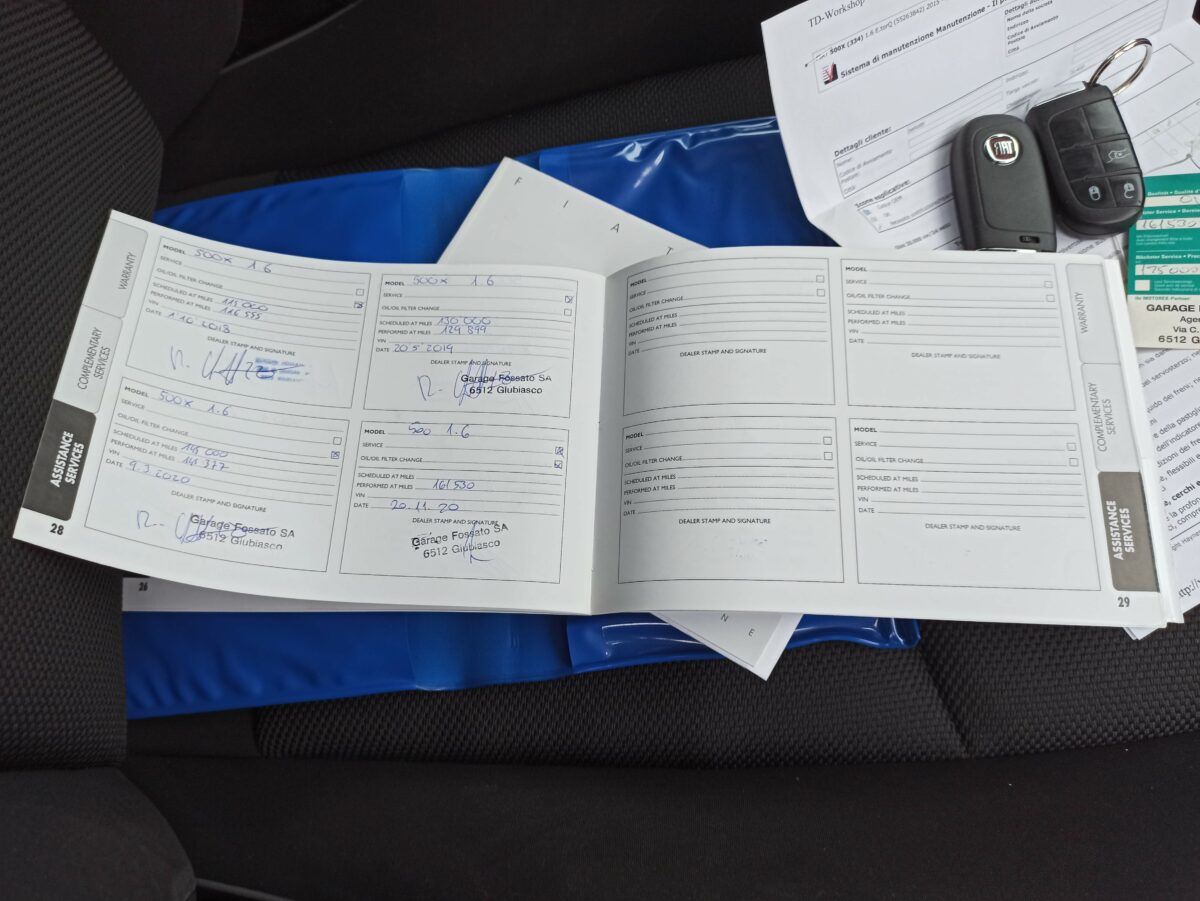 TD-Workshop
500X (334) 1.6 E.torQ (55263842) 2015
Sistema di manutenzione Manutenzione - Il
Nome della società
Indirizzo
Codice di Avviamento
Postale
Città
Dettagli cliente:
Nome:
Codice di Avviamento
Postale
Città
FIAT
F I A T
WARRANTY
COMPLEMENTARY
SERVICES
ASSISTANCE
SERVICES
28
MODEL 500X 1.6
SERVICE
OIL/OIL FILTER CHANGE
SCHEDULED AT MILES 115 000
PERFORMED AT MILES 116 555
VIN
DATE 1.10.2018
DEALER STAMP AND SIGNATURE
MODEL 500X 1.6
SERVICE
OIL/OIL FILTER CHANGE
SCHEDULED AT MILES 130 000
PERFORMED AT MILES 129 899
VIN
DATE 20 5 2019
DEALER STAMP AND SIGNATURE
Garage Fossato SA
6512 Giubiasco
MODEL 500X 1.6
SERVICE
OIL/OIL FILTER CHANGE
SCHEDULED AT MILES 145 000
PERFORMED AT MILES 145 377
VIN
DATE 9.3.2020
DEALER STAMP AND SIGNATURE
Garage Fossato SA
6512 Giubiasco
MODEL 500 1.6
SERVICE
OIL/OIL FILTER CHANGE
SCHEDULED AT MILES
PERFORMED AT MILES 161 530
VIN
DATE 20.11.20
DEALER STAMP AND SIGNATURE
Garage Fossato SA
6512 Giubiasco
26
MODEL
SERVICE
OIL/OIL FILTER CHANGE
SCHEDULED AT MILES
PERFORMED AT MILES
VIN
DATE
DEALER STAMP AND SIGNATURE
MODEL
SERVICE
OIL/OIL FILTER CHANGE
SCHEDULED AT MILES
PERFORMED AT MILES
VIN
DATE
DEALER STAMP AND SIGNATURE
MODEL
SERVICE
OIL/OIL FILTER CHANGE
SCHEDULED AT MILES
PERFORMED AT MILES
VIN
DATE
DEALER STAMP AND SIGNATURE
MODEL
SERVICE
OIL/OIL FILTER CHANGE
SCHEDULED AT MILES
PERFORMED AT MILES
VIN
DATE
DEALER STAMP AND SIGNATURE
WARRANTY
COMPLEMENTARY
SERVICES
ASSISTANCE
SERVICES
29
N E
161530
175000
GARAGE
Via C.
6512 G